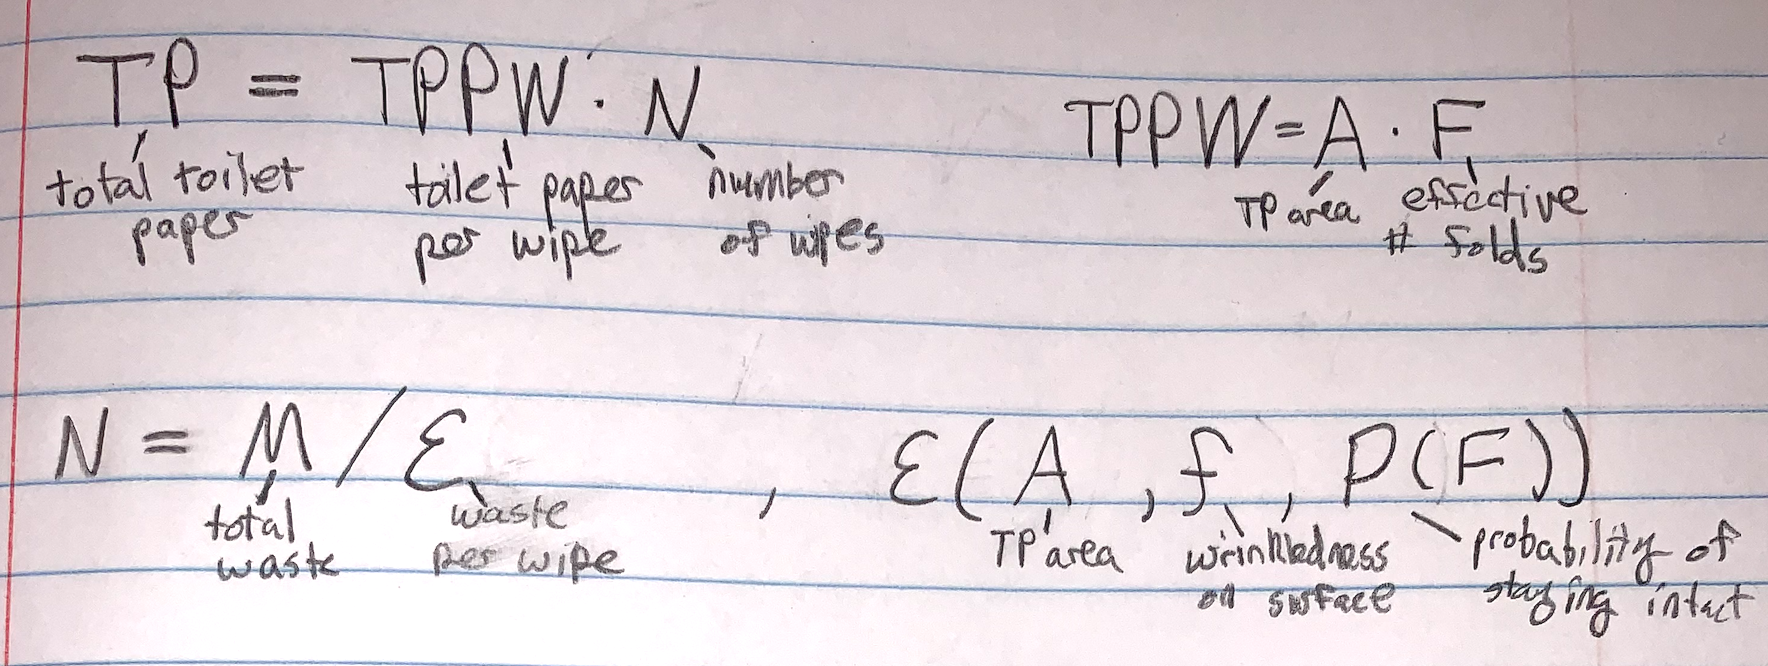 TP = TPPW · N
total toilet paper
toilet paper per wipe
number of wipes
TPPW = A · F
TP area
effective # folds
N = M / ε , ε(A, f, P(F))
total waste
waste per wipe
TP area
wrinkledness on surface
probability of staying intact